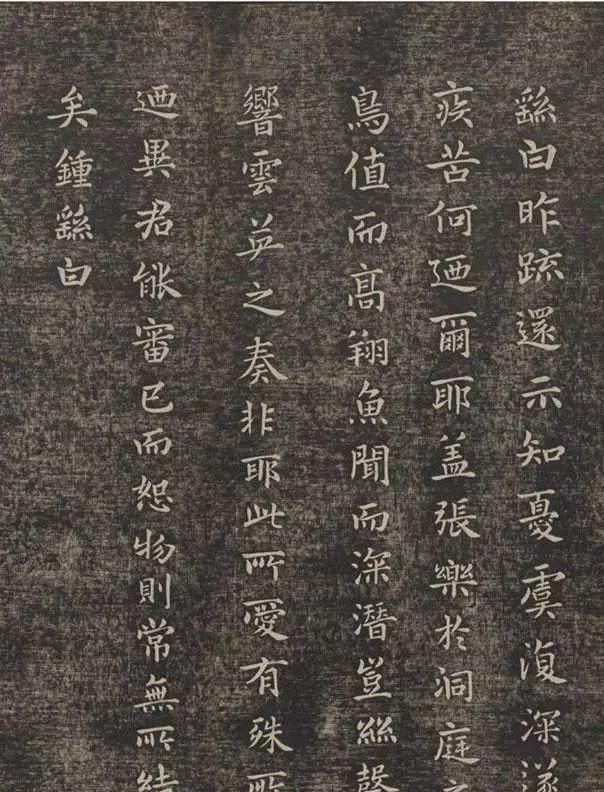 繇白昨疏還示知憂虞復深遂
疾苦何迺爾耶盖張樂於洞庭之
鳥值而髙翔魚聞而深潛豈絲磬
響雲英之奏非耶此所愛有殊所
迺異君能審己而恕物則常無所結
矣鍾繇白